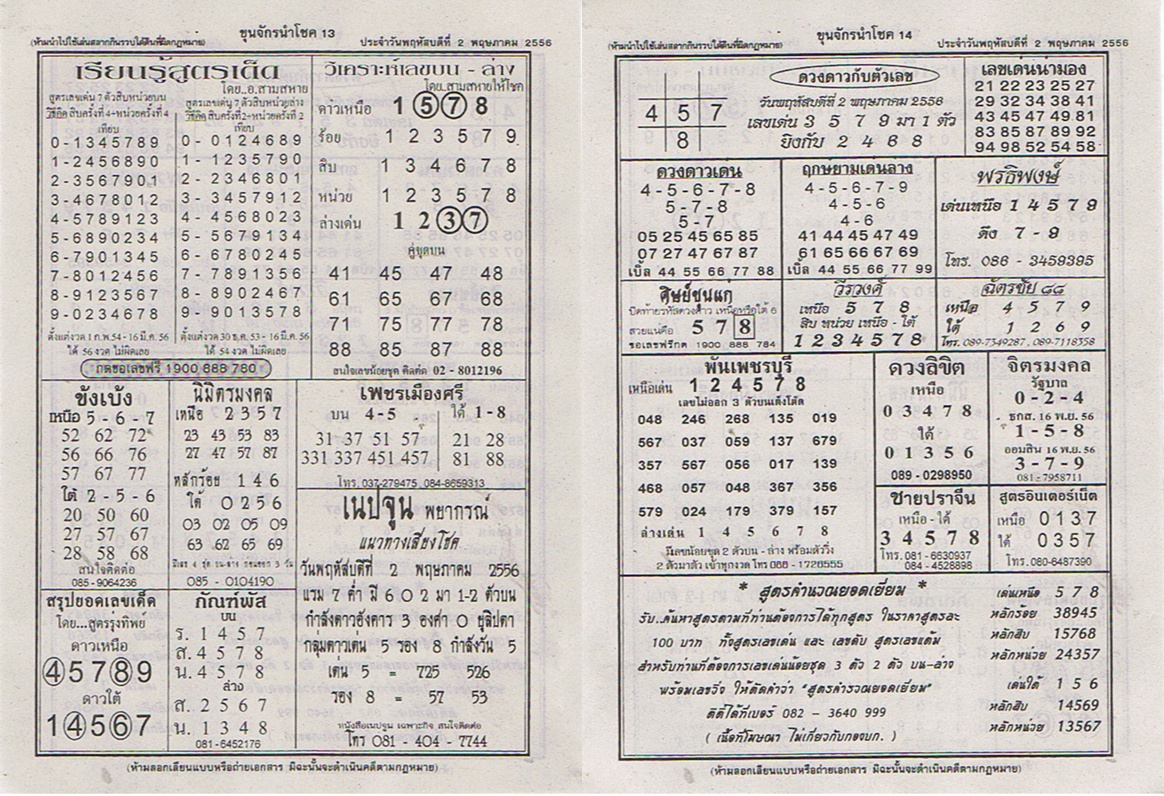 ขุนจักรนำโชค 13
(ห้ามนำไปใช้เล่นสลากกินรวบใต้ดินที่ผิดกฎหมาย) ประจำวันพฤหัสบดีที่ 2 พฤษภาคม 2556
เรียนรู้สูตรเด็ด
โดย..อ.สามสหาย
สูตรเลขเด่น 7 ตัวสิบหน่วยบน สูตรเลขเด่น 7 ตัวสิบหน่วยล่าง
วิธีคิด สิบครั้งที่ 4+หน่วยครั้งที่ 4 วิธีคิด สิบครั้งที่2+หน่วยครั้งที่ 2
เทียบ เทียบ
0-1345789 0- 0124689
1-2456890 1- 1235790
2-3567901 2- 2346801
3-4678012 3- 3457912
4-5789123 4- 4568023
5-6890234 5- 5679134
6-7901345 6- 6780245
7-8012456 7- 7891356
8-9123567 8- 8902467
9-0234678 9- 9013578
ตั้งแต่งวด 1 ก.พ.54 - 16 มี.ค. 56 ตั้งแต่งวด 30 ธ.ค. 53 - 16 มี.ค. 56
ได้ 56 งวด ไม่ผิดเลย ได้ 54 งวด ไม่ผิดเลย
กดขอเลขฟรี 1900 888 780
วิเคราะห์เลขบน - ล่าง
โดย..สามสหายให้โชค
ดาวเหนือ 1 5 7 8
ร้อย 1 2 3 5 7 9
สิบ 1 3 4 6 7 8
หน่วย 1 2 3 5 7 8
ล่างเด่น 1 2 3 7
คู่ชุดบน
41 45 47 48
61 65 67 68
71 75 77 78
88 85 87 88
สนใจเลขน้อยชุด ติดต่อ 02 - 8012196
ขังเบ้ง
เหนือ 5 - 6 - 7
52 62 72
56 66 76
57 67 77
ใต้ 2 - 5 - 6
20 50 60
27 57 67
28 58 68
สนใจติดต่อ
085-9064236
นิมิตรมงคล
เหนือ 2 3 5 7
23 43 53 83
27 47 57 87
หลักร้อย 1 4 6
ใต้ 0 2 5 6
03 02 05 09
63 62 65 69
085 - 0104190
เพชรเมืองศรี
บน 4-5 ใต้ 1-8
31 37 51 57 21 28
331 337 451 457 81 88
โทร. 037-279475 ,084-8659313
เนปจูน พยากรณ์
แนวทางเสี่ยงโชค
วันพฤหัสบดีที่ 2 พฤษภาคม 2556
แรม 7 ค่ำ ปี 6 0 2 มา 1-2 ตัวบน
กำลังดาวอังคาร 3 องศา 0 ยุลิปดา
กลุ่มดาวเด่น 5 รอง 8 กำลังวัน 5
เด่น 5 = 725 526
รอง 8 = 57 53
หนังสือเนปจูน เฉพาะกิจ สนใจติดต่อ
โทร 081 - 404 - 7744
สรุปยอดเลขเด็ด
โดย...สูตรรุ่งทิพย์
ดาวเหนือ
4 5 7 8 9
ดาวใต้
1 4 5 6 7
กัณฑ์พัส
บน
ร. 1 4 5 7
ส. 4 5 7 8
น. 4 5 7 8
ล่าง
ส. 2 5 6 7
น. 1 3 4 8
081-6452176
(ห้ามลอกเลียนแบบหรือถ่ายเอกสาร มิฉะนั้นจะดำเนินคดีตามกฎหมาย)
ขุนจักรนำโชค 14
(ห้ามนำไปใช้เล่นสลากกินรวบใต้ดินที่ผิดกฎหมาย) ประจำวันพฤหัสบดีที่ 2 พฤษภาคม 2556
ดวงดาวกับตัวเลข
4 5 7
8
วันพฤหัสบดีที่ 2 พฤษภาคม 2556
เลขเด่น 3 5 7 9 มา 1 ตัว
ยิงกับ 2 4 6 8
เลขเด่นน่ามอง
21 22 23 25 27
29 32 34 38 41
43 45 47 49 81
83 85 87 89 92
94 98 52 54 58
ดวงดาวเด่น
4 - 5 - 6 - 7 - 8
5 - 7 - 8
5 - 7
05 25 45 65 85
07 27 47 67 87
เบิ้ล 44 55 66 77 88
ฤกษ์ยามเด่นล่าง
4 - 5 - 6 - 7 - 9
4 - 5 - 6
4 - 6
41 44 45 47 49
61 65 66 67 69
เบิ้ล 44 55 66 77 99
พรธิพงษ์
เด่นเหนือ 1 4 5 7 9
ดึง 7 - 9
โทร. 086 - 3459395
ศิษย์ชนแก่
ปิดท้ายรหัสดวงดาว เหนือหรือใต้ 6
สวยแน่คือ 5 7 8
ขอเลขฟรีกด 1900 888 784
วีรวงศ์
เหนือ 5 7 8
สิบ หน่วย เหนือ - ใต้
1 2 3 4 5 7 8
ฉัตรชัย ๘๘
เหนือ 4 5 7 9
ใต้ 1 2 6 9
โทร. 089-7349287 , 089-7118358
พันเพชรบุรี
เหนือเด่น 1 2 4 5 7 8
เลขไม่ออก 3 ตัวบนเต็งโต๊ด
048 246 268 135 019
567 037 059 137 679
357 567 056 017 139
468 057 048 367 356
579 024 179 379 157
ล่างเด่น 1 4 5 6 7 8
มีเลขน้อยชุด 2 ตัวบน - ล่าง พร้อมตัววิ่ง
2 ตัวมาตัว เข้าทุกงวด โทร 088 - 1726555
ดวงลิขิต
เหนือ
0 3 4 7 8
ใต้
0 1 3 5 6
089 -0298950
จิตรมงคล
รัฐบาล
0 - 2 - 4
ธกส. 16 พ.ย. 56
1 - 5 - 8
ออมสิน 16 พ.ย. 56
3 - 7 - 9
081-7958711
ชายปราจีน
เหนือ - ใต้
3 4 5 7 8
โทร. 081 - 6630937
084 - 4528898
สูตรอินเตอร์เน็ต
เหนือ 0 1 3 7
ใต้ 0 3 5 7
โทร. 080-6487390
* สูตรคำนวณยอดเยี่ยม *
รับ..ค้นหาสูตรตามที่ท่านต้องการได้ทุกสูตร ในราคาสูตรละ
100 บาท ทั้งสูตรเลขเด่น และ เลขดับ สูตรแต้ม
สำหรับท่านที่ต้องการเลขเด่นน้อยชุด 3 ตัว 2 ตัว บน-ล่าง
พร้อมเลขวิ่ง ให้ตัดคำว่า "สูตรคำรวณยอดเยี่ยม"
ติดต่อได้ที่เบอร์ 082 - 3640 999
( เนื้อที่โฆษณา ไม่เกี่ยวกับกองบก. )
เด่นเหนือ 5 7 8
หลักร้อย 38945
หลักสิบ 15768
หลักหน่วย 24357
เด่นใต้ 1 5 6
หลักสิบ 14569
หลักหน่วย 13567
(ห้ามลอกเลียนแบบหรือถ่ายเอกสาร มิฉะนั้นจะดำเนินคดีตามกฎหมาย)